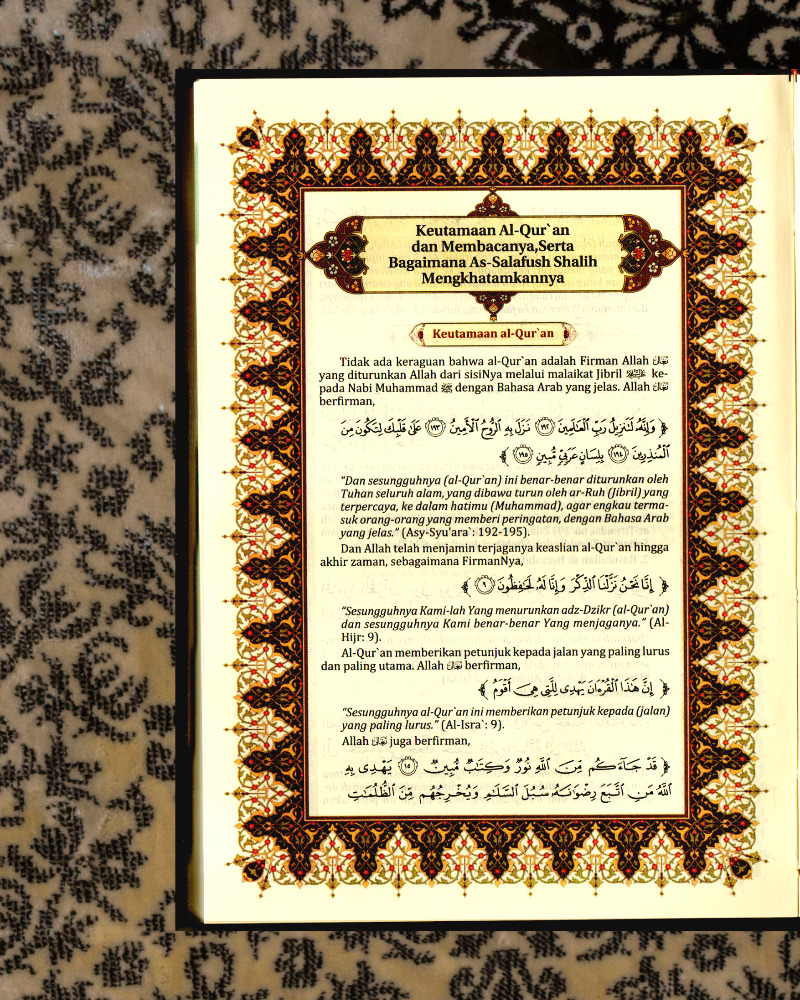 Keutamaan Al-Qur`an
dan Membacanya,Serta
Bagaimana As-Salafush Shalih
Mengkhatamkannya
Keutamaan al-Qur`an
Tidak ada keraguan bahwa al-Qur`an adalah Firman Allah ﷻ
yang diturunkan Allah dari sisiNya melalui malaikat Jibril ke-
pada Nabi Muhammad ﷺ dengan Bahasa Arab yang jelas. Allah ﷻ
berfirman,
﴿ وَإِنَّهُۥ لَتَنزِيلُ رَبِّ ٱلْعَٰلَمِينَ ١٩٢ نَزَلَ بِهِ ٱلرُّوحُ ٱلْأَمِينُ ١٩٣ عَلَىٰ قَلْبِكَ لِتَكُونَ مِنَ
ٱلْمُنذِرِينَ ١٩٤ بِلِسَانٍ عَرَبِىٍّ مُّبِينٍ ١٩٥ ﴾
"Dan sesungguhnya (al-Qur`an) ini benar-benar diturunkan oleh
Tuhan seluruh alam, yang dibawa turun oleh ar-Ruh (Jibril) yang
terpercaya, ke dalam hatimu (Muhammad), agar engkau terma-
suk orang-orang yang memberi peringatan, dengan Bahasa Arab
yang jelas." (Asy-Syu'ara`: 192-195).
Dan Allah telah menjamin terjaganya keaslian al-Qur`an hingga
akhir zaman, sebagaimana FirmanNya,
﴿ إِنَّا نَحْنُ نَزَّلْنَا ٱلذِّكْرَ وَإِنَّا لَهُۥ لَحَٰفِظُونَ ٩ ﴾
"Sesungguhnya Kami-lah Yang menurunkan adz-Dzikr (al-Qur`an)
dan sesungguhnya Kami benar-benar Yang menjaganya." (Al-
Hijr: 9).
Al-Qur`an memberikan petunjuk kepada jalan yang paling lurus
dan paling utama. Allah ﷻ berfirman,
﴿ إِنَّ هَٰذَا ٱلْقُرْءَانَ يَهْدِى لِلَّتِى هِىَ أَقْوَمُ ﴾
"Sesungguhnya al-Qur`an ini memberikan petunjuk kepada (jalan)
yang paling lurus." (Al-Isra`: 9).
Allah ﷻ juga berfirman,
﴿ قَدْ جَآءَكُم مِّنَ ٱللَّهِ نُورٌ وَكِتَٰبٌ مُّبِينٌ ١٥ يَهْدِى بِهِ
ٱللَّهُ مَنِ ٱتَّبَعَ رِضْوَٰنَهُۥ سُبُلَ ٱلسَّلَٰمِ وَيُخْرِجُهُم مِّنَ ٱلظُّلُمَٰتِ